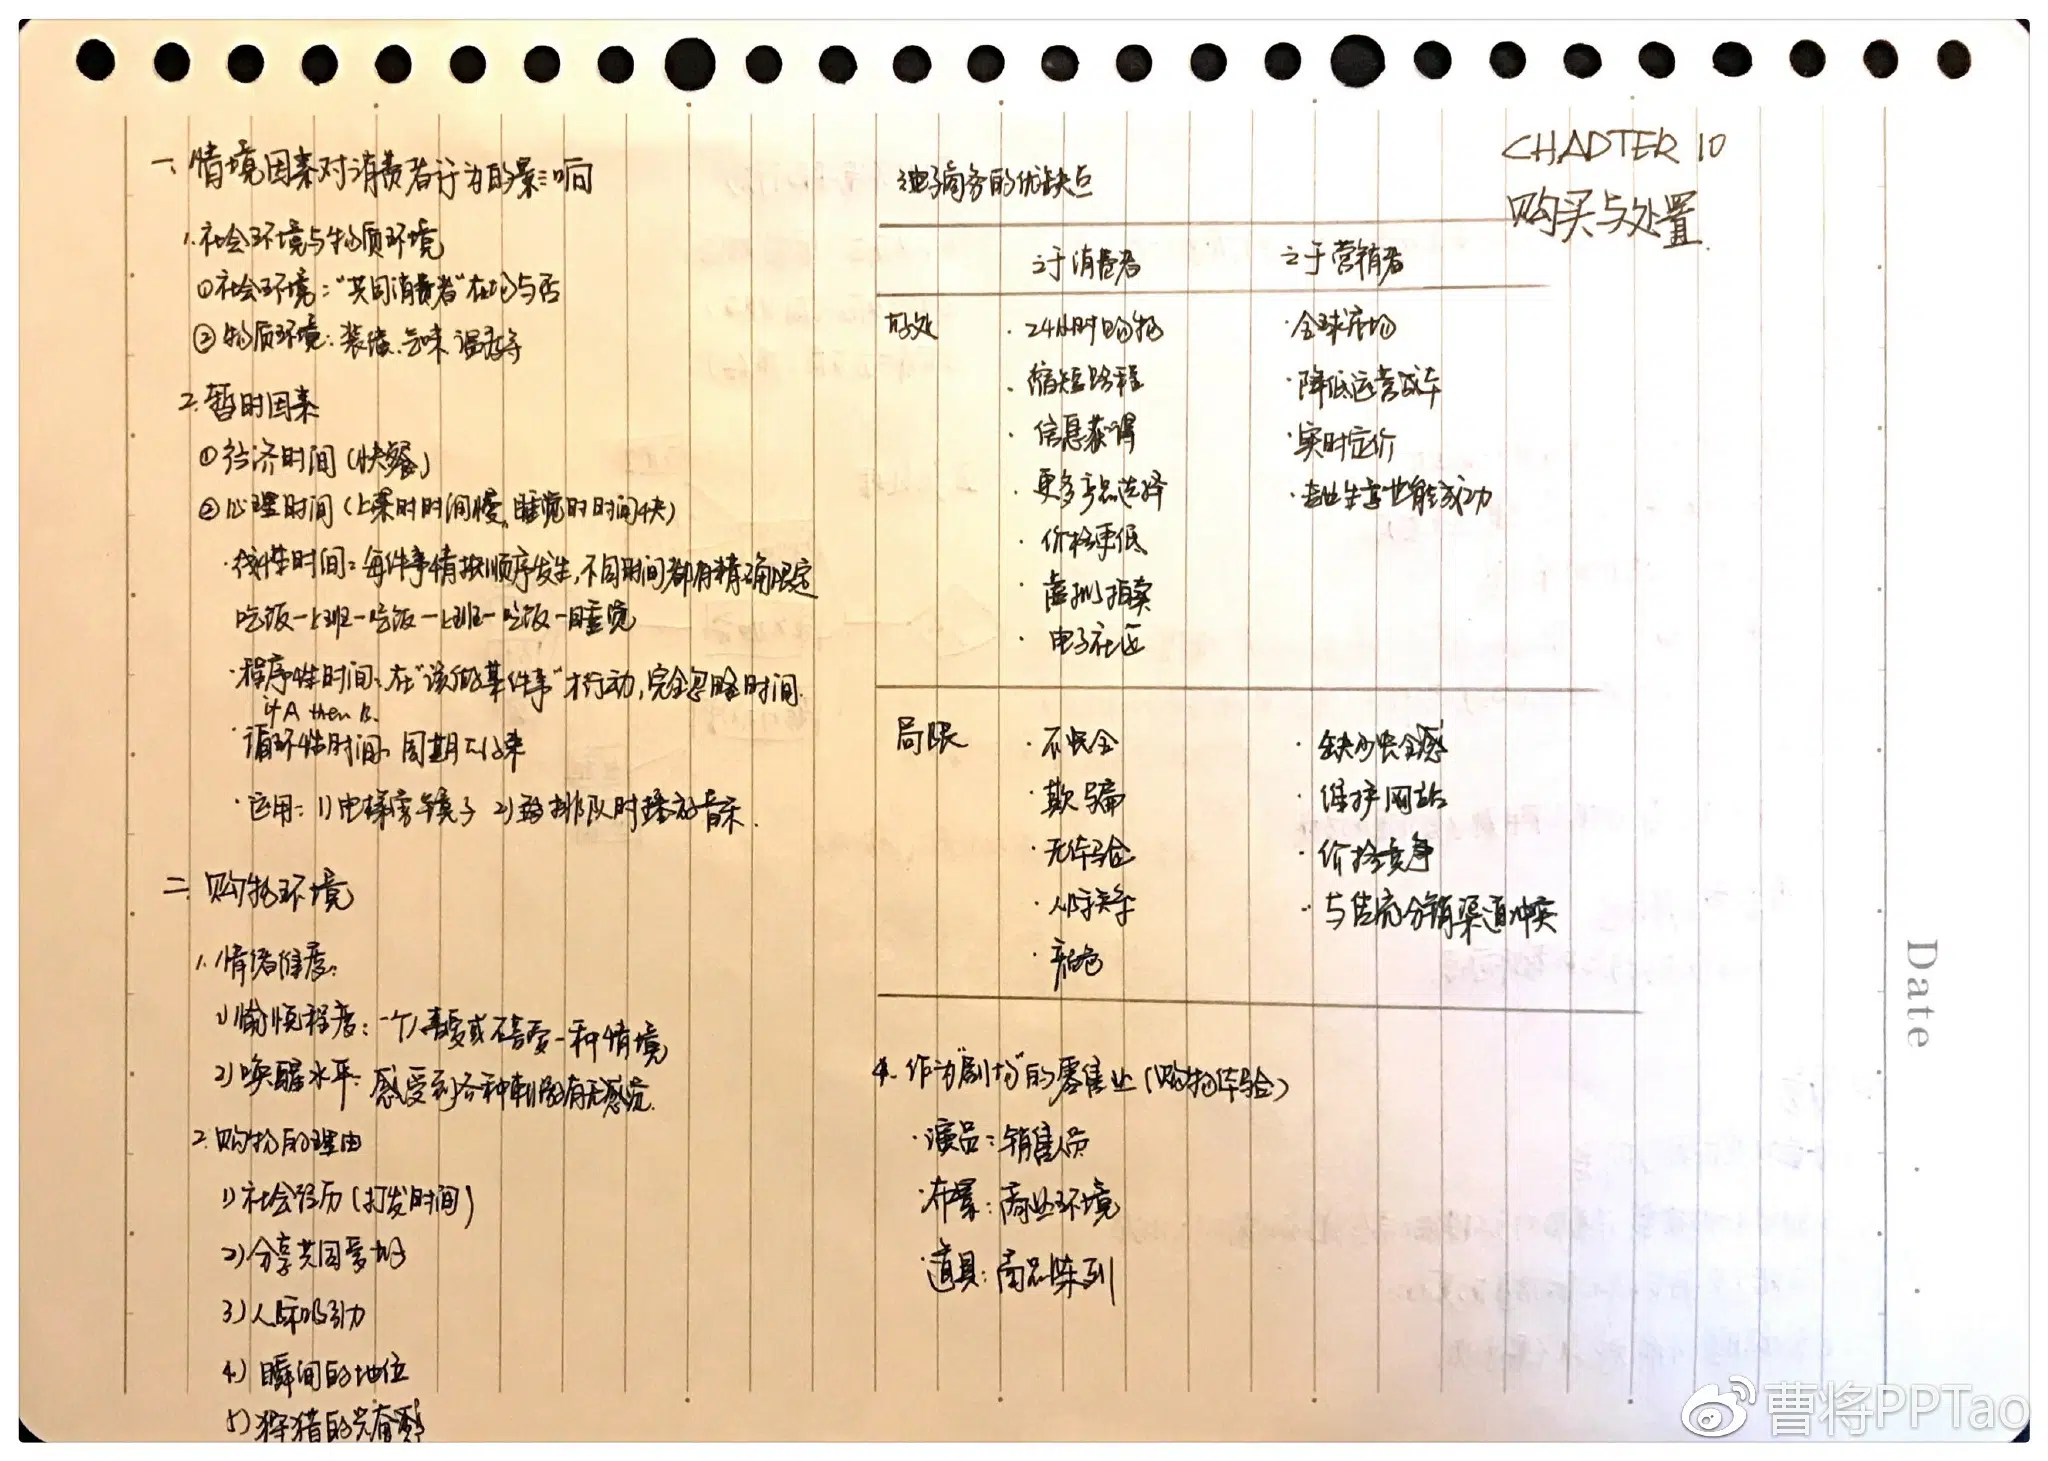 CHADTER 10
购买与处置.
一、情境因素对消费者行为的影响
1. 社会环境与物质环境
①社会环境：“共同消费者”在场与否
②物质环境：装修、气味、温度等
2. 暂时因素
①经济时间（快餐）
②心理时间（上课时时间慢，睡觉时时间快）
·线性时间：每件事情按顺序发生，不同时间都有精确限定
吃饭－上班－吃饭－上班－吃饭－睡觉
·程序性时间：在“该做某件事”才行动，完全忽略时间.
if A then B.
循环性时间：周期
·运用：1）电梯旁镜子 2）排队时播放音乐.
二. 购物环境
1. 情绪维度：
1）愉悦程度：一个人喜爱或不喜爱一种情境
2）唤醒水平：感受到各种刺激有无感觉.
2. 购物的理由
1）社会经历（打发时间）
2）分享共同爱好
3）人际吸引力
4）瞬间的地位
5）狩猎的兴奋
3. 电子商务的优缺点
对于消费者 对于营销者
好处 ·24小时购物 ·全球市场
·缩短路程 ·降低运营成本
·信息获得 ·实时定价
·更多产品选择 ·专业生意也能成功
·价格更低
·虚拟拍卖
·电子社区
局限 ·不安全 ·缺少安全感
·欺骗 ·维护网站
·无体验 ·价格竞争
·人际关系 ·与传统分销渠道冲突
·颜色
4. 作为“剧场”的零售业（购物体验）
·演员：销售人员
·布景：商业环境
·道具：商品陈列
Date
曹将PPTao